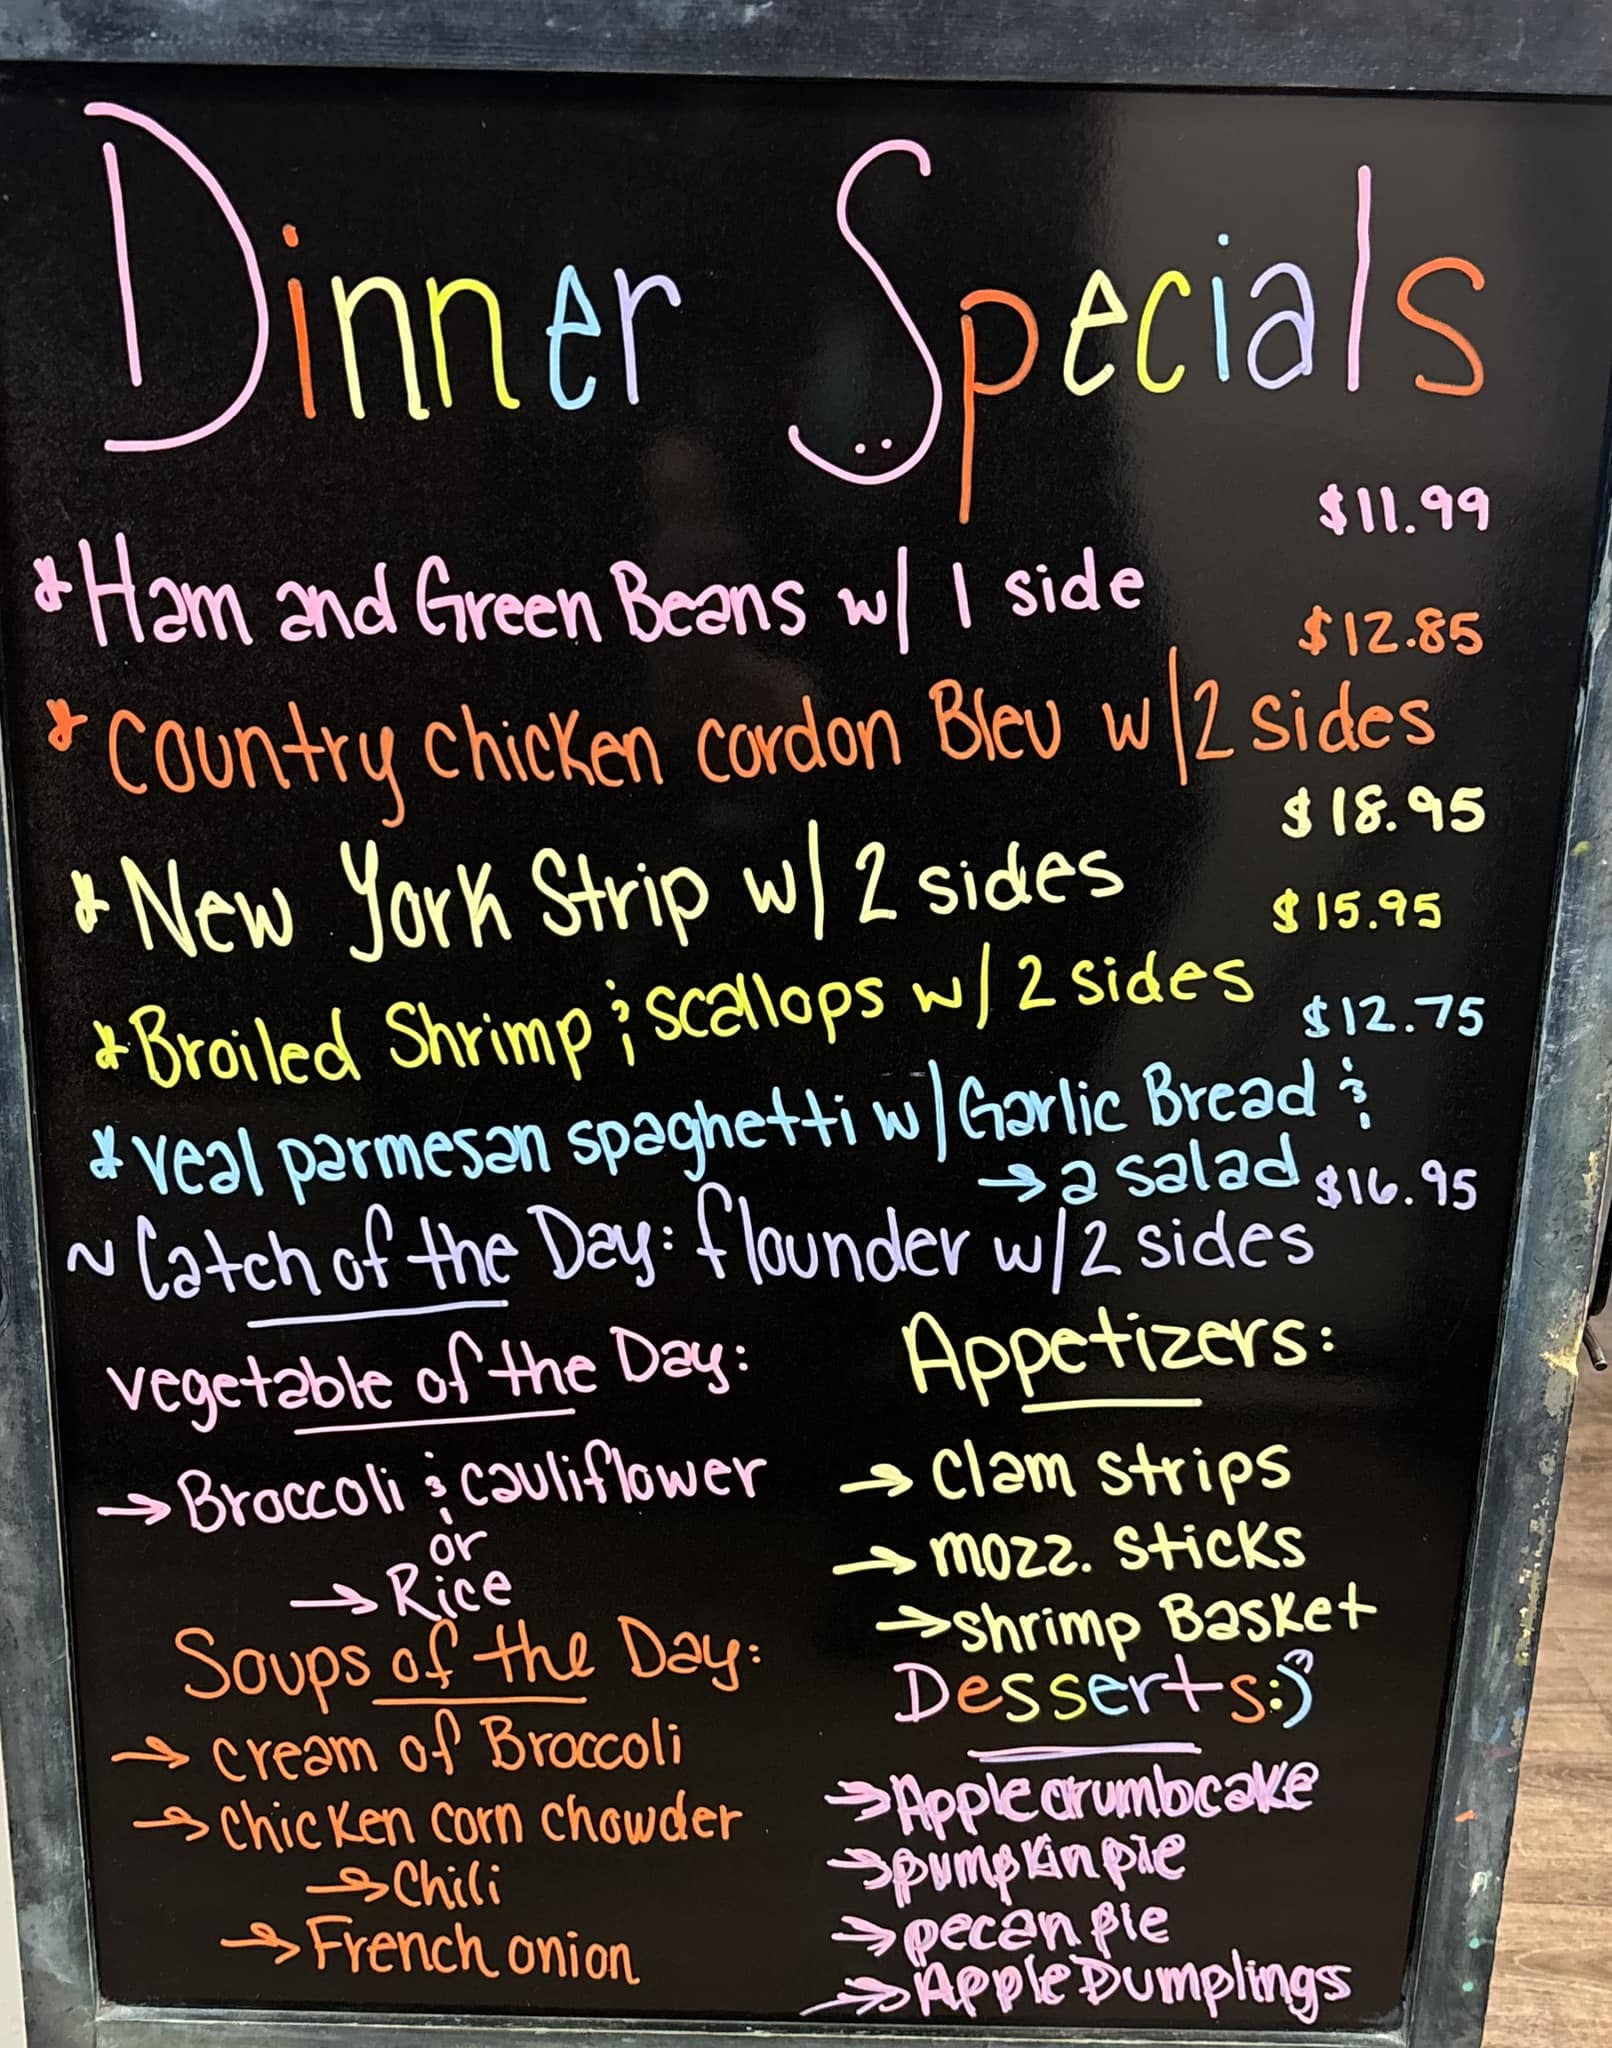 Dinner Specials
$11.99
* Ham and Green Beans w/ 1 side
$12.85
* Country chicken cordon Bleu w/ 2 sides
$18.95
* New York Strip w/ 2 sides
$15.95
* Broiled Shrimp & scallops w/ 2 sides
$12.75
* veal parmesan spaghetti w/ Garlic Bread &
→ a salad
$16.95
~ Catch of the Day: flounder w/ 2 sides
vegetable of the Day:
→ Broccoli & cauliflower
or
→ Rice
Soups of the Day:
→ cream of Broccoli
→ chicken corn chowder
→ Chili
→ French onion
Appetizers:
→ Clam strips
→ mozz. sticks
→ shrimp Basket
Desserts :)
→ Apple crumbcake
→ pumpkin pie
→ pecan pie
→ Apple Dumplings